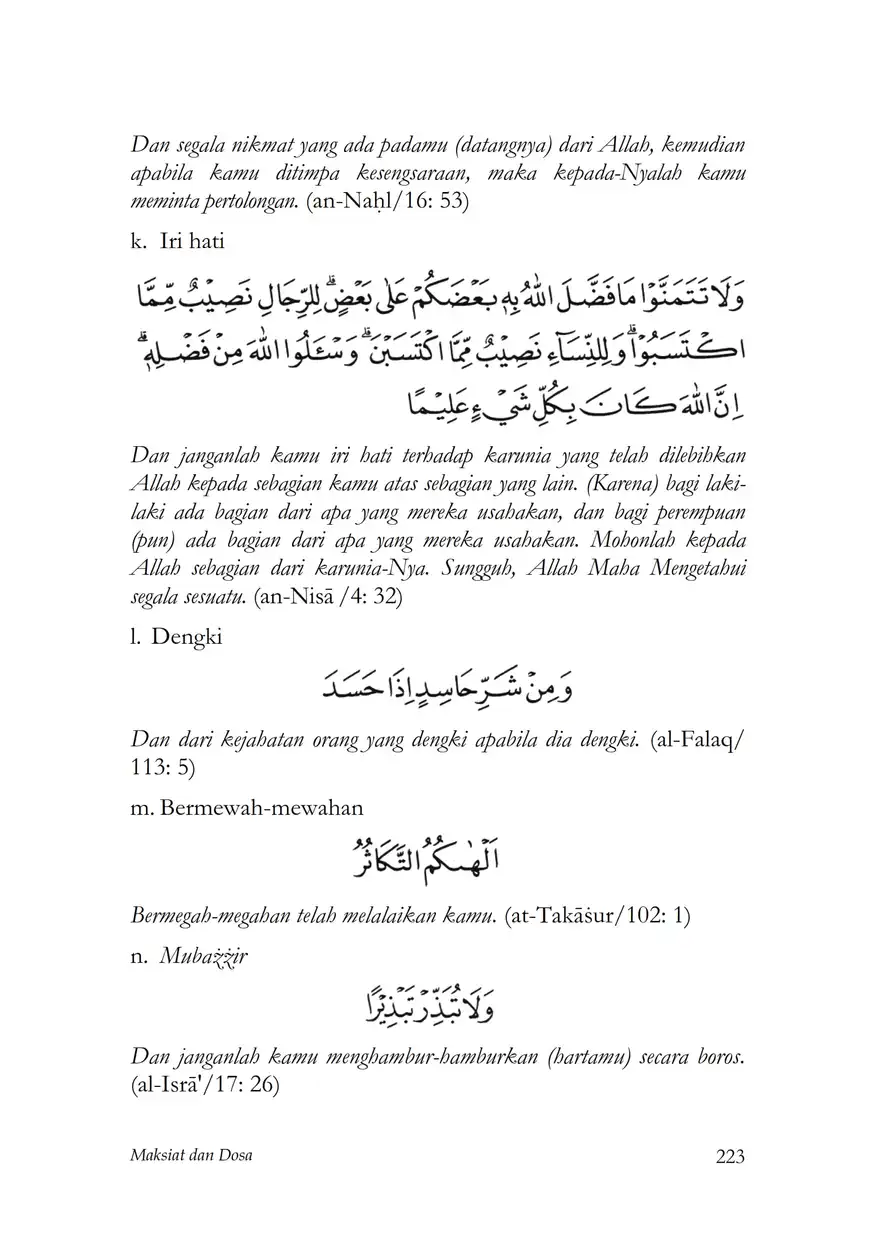 Dan segala nikmat yang ada padamu (datangnya) dari Allah, kemudian
apabila kamu ditimpa kesengsaraan, maka kepada-Nyalah kamu
meminta pertolongan. (an-Naḥl/16: 53)
k. Iri hati
وَلَا تَتَمَنَّوْا مَا فَضَّلَ اللّٰهُ بِهٖ بَعْضَكُمْ عَلٰى بَعْضٍۗ لِلرِّجَالِ نَصِيْبٌ مِّمَّا
اكْتَسَبُوْاۗ وَلِلنِّسَاۤءِ نَصِيْبٌ مِّمَّا اكْتَسَبْنَۗ وَسْـَٔلُوا اللّٰهَ مِنْ فَضْلِهٖۗ
اِنَّ اللّٰهَ كَانَ بِكُلِّ شَيْءٍ عَلِيْمًا
Dan janganlah kamu iri hati terhadap karunia yang telah dilebihkan
Allah kepada sebagian kamu atas sebagian yang lain. (Karena) bagi laki-
laki ada bagian dari apa yang mereka usahakan, dan bagi perempuan
(pun) ada bagian dari apa yang mereka usahakan. Mohonlah kepada
Allah sebagian dari karunia-Nya. Sungguh, Allah Maha Mengetahui
segala sesuatu. (an-Nisā /4: 32)
l. Dengki
وَمِنْ شَرِّ حَاسِدٍ اِذَا حَسَدَ
Dan dari kejahatan orang yang dengki apabila dia dengki. (al-Falaq/
113: 5)
m. Bermewah-mewahan
اَلْهٰىكُمُ التَّكَاثُرُ
Bermegah-megahan telah melalaikan kamu. (at-Takāṡur/102: 1)
n. Mubażżir
وَلَا تُبَذِّرْ تَبْذِيْرًا
Dan janganlah kamu menghambur-hamburkan (hartamu) secara boros.
(al-Isrā'/17: 26)
Maksiat dan Dosa 223